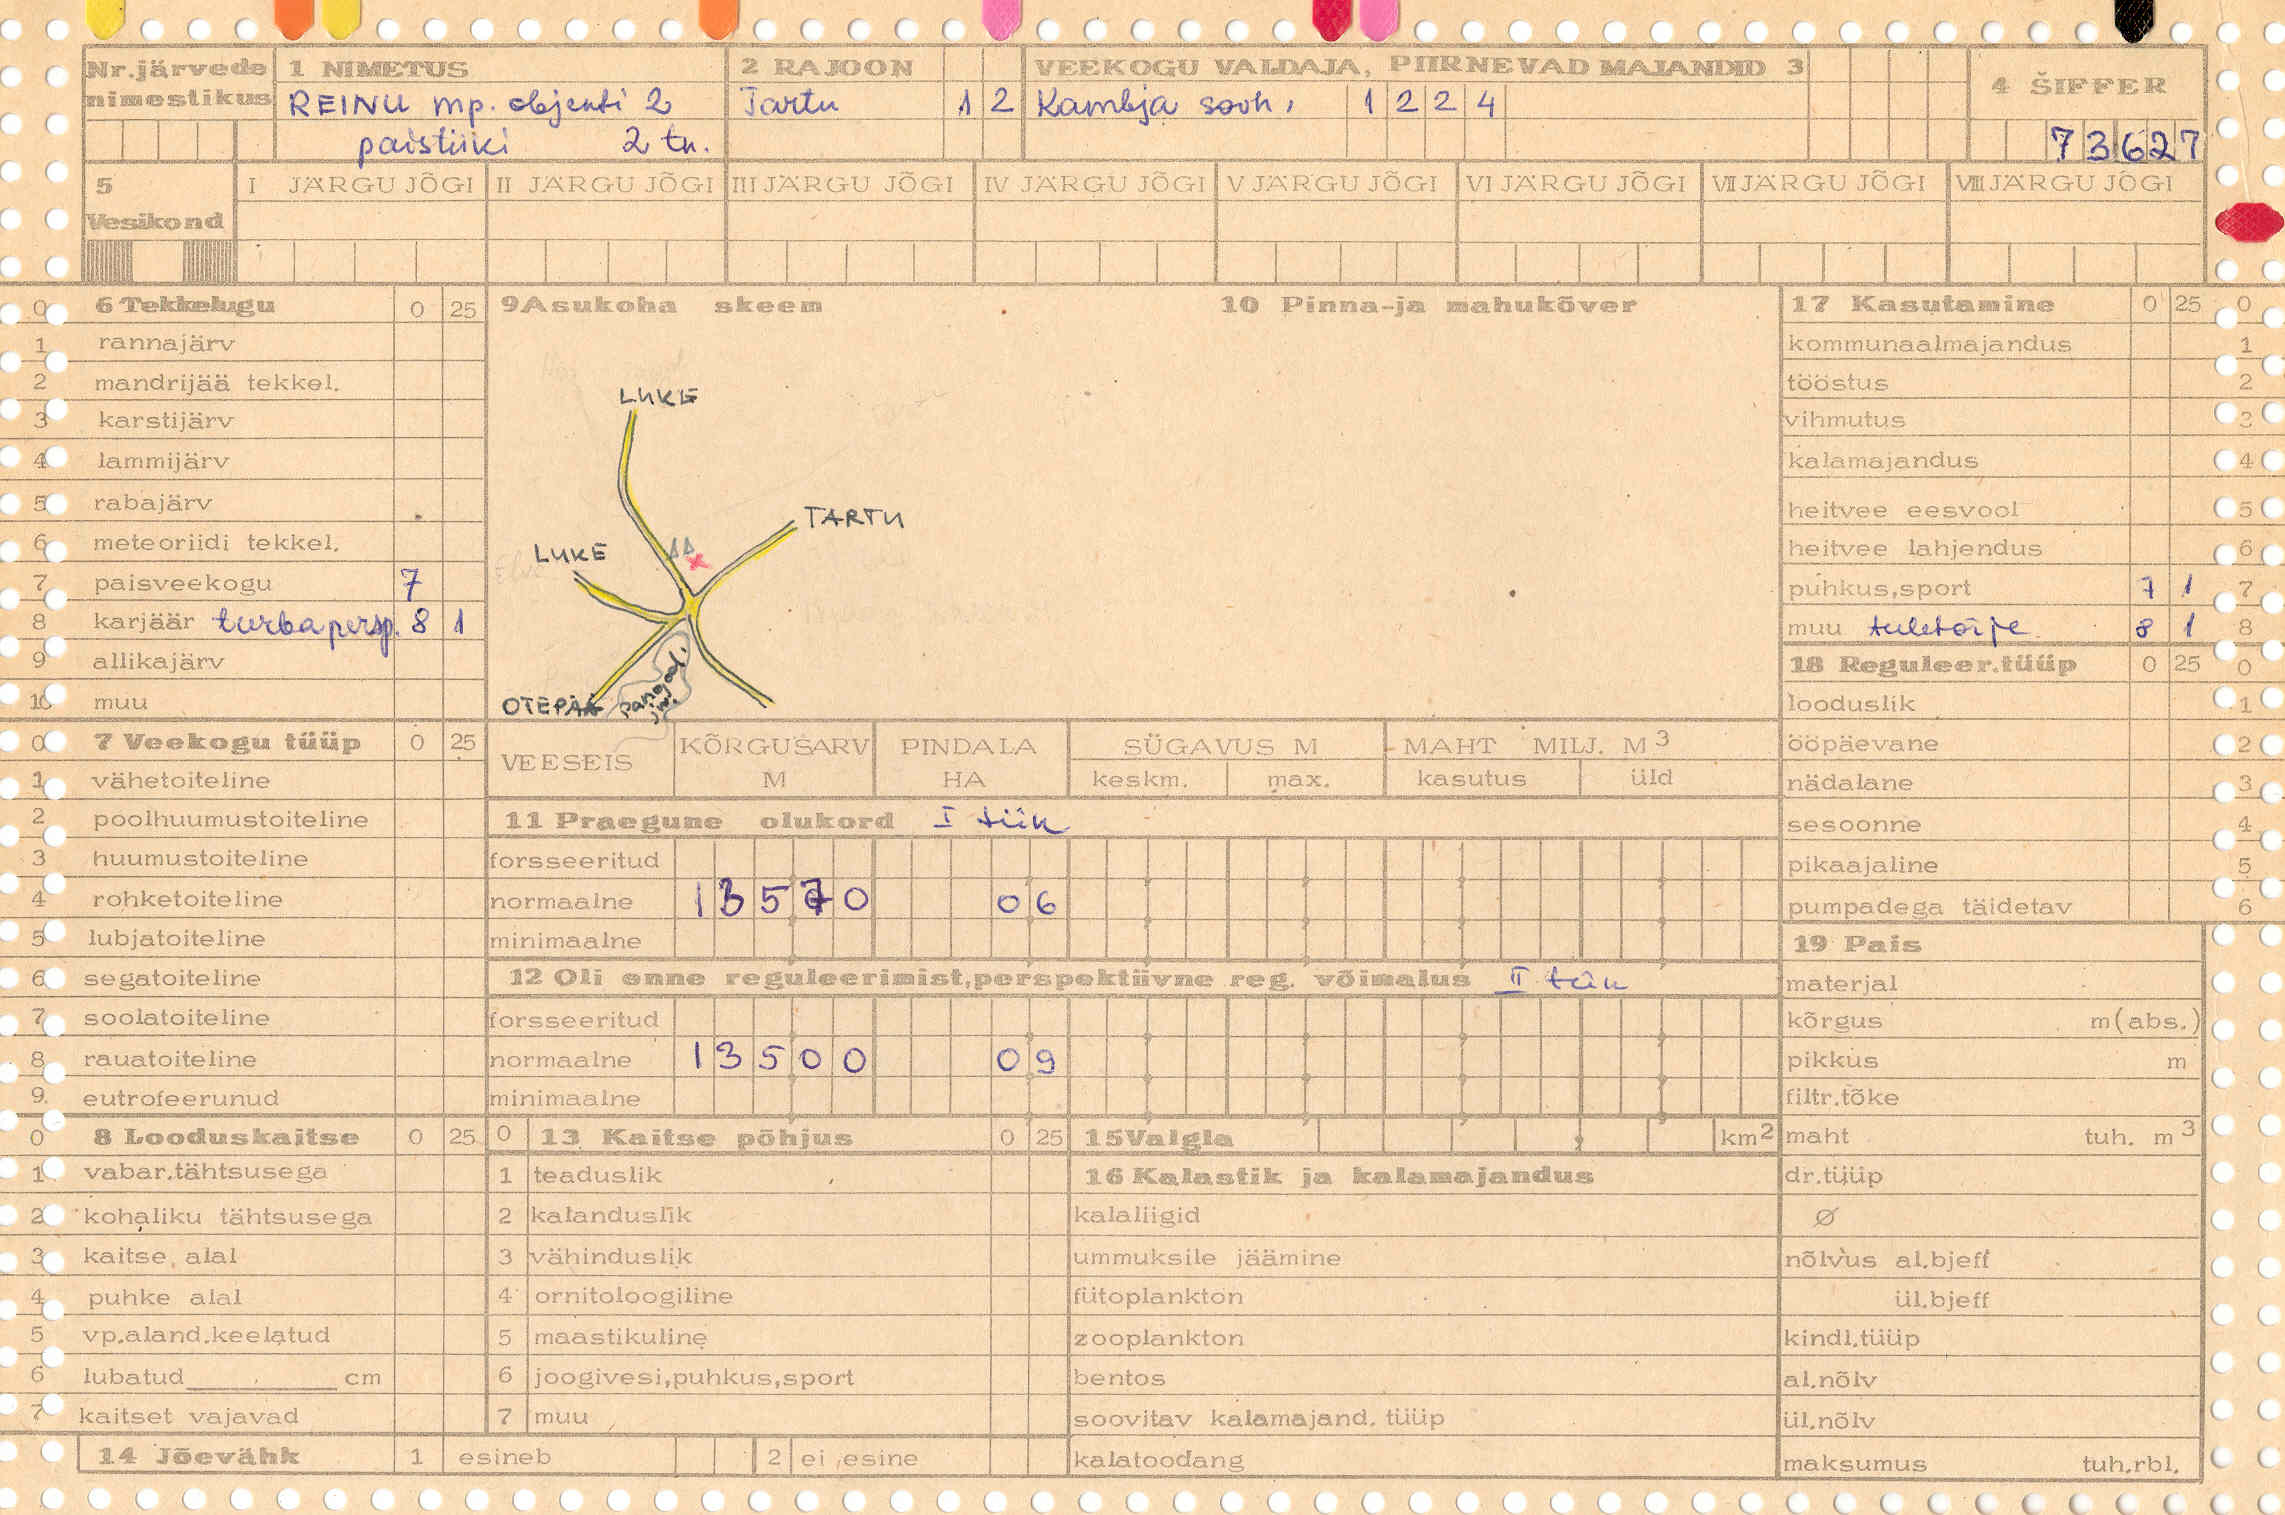 Nr.järvede nimestikus
1 NIMETUS
REINU mp. objekti 2
paistiiki 2 tk.
2 RAJOON
Tartu 1 2
VEEKOGU VALDAJA, PIIRNEVAD MAJANDID 3
Kambja sovh. 1 2 2 4
4 ŠIFFER
7 3 6 2 7
5 Vesikond
I JÄRGU JÕGI II JÄRGU JÕGI III JÄRGU JÕGI IV JÄRGU JÕGI V JÄRGU JÕGI VI JÄRGU JÕGI VII JÄRGU JÕGI VIII JÄRGU JÕGI
0 6 Tekkelugu 0 25
1 rannajärv
2 mandrijää tekkel.
3 karstijärv
4 lammijärv
5 rabajärv
6 meteoriidi tekkel.
7 paisveekogu 7
8 karjäär turbapersp. 8 1
9 allikajärv
10 muu
0 7 Veekogu tüüp 0 25
1 vähetoiteline
2 poolhuumustoiteline
3 huumustoiteline
4 rohketoiteline
5 lubjatoiteline
6 segatoiteline
7 soolatoiteline
8 rauatoiteline
9. eutrofeerunud
0 8 Looduskaitse 0 25
1 vabar.tähtsusega
2 kohaliku tähtsusega
3 kaitse alal
4 puhke alal
5 vp.aland.keelatud
6 lubatud cm
7 kaitset vajavad
14 Jõevähk 1 esineb 2 ei esine
9 Asukoha skeem
10 Pinna-ja mahukõver
LUKE
TARTU
LUKE
OTEPÄÄ
Pangodi
jv.
VEESEIS
KÕRGUSARV M
PINDALA HA
SÜGAVUS M
keskm. max.
MAHT MILJ. M3
kasutus üld
11 Praegune olukord I tiik
forsseeritud
normaalne 1 3 5 7 0 0 6
minimaalne
12 Oli enne reguleerimist,perspektiivne reg. võimalus II tiik
forsseeritud
normaalne 1 3 5 0 0 0 9
minimaalne
0 13 Kaitse põhjus 0 25
1 teaduslik
2 kalanduslik
3 vähinduslik
4 ornitoloogiline
5 maastikuline
6 joogivesi,puhkus,sport
7 muu
15 Valgla km2
16 Kalastik ja kalamajandus
kalaliigid
ummuksile jäämine
fütoplankton
zooplankton
bentos
soovitav kalamajand. tüüp
kalatoodang
17 Kasutamine 0 25 0
kommunaalmajandus 1
tööstus 2
vihmutus 3
kalamajandus 4
heitvee eesvool 5
heitvee lahjendus 6
puhkus,sport 7 1 7
muu tuletõrje 8 1 8
18 Reguleer.tüüp 0 25 0
looduslik 1
ööpäevane 2
nädalane 3
sesoonne 4
pikaajaline 5
pumpadega täidetav 6
19 Pais
materjal
kõrgus m(abs.)
pikkus m
filtr.tõke
maht tuh. m3
dr.tüüp
Ø
nõlvus al.bjeff
ül.bjeff
kindl.tüüp
al.nõlv
ül.nõlv
maksumus tuh.rbl.